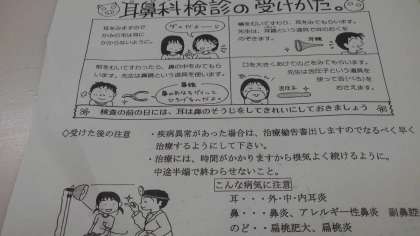 耳鼻科検診の受けかた。
耳をみますので
かみの毛は耳に
かからないように。
横をむいてすわり、耳をみてもらいます。
先生は、耳鏡という道具で耳のおくを
のぞきます。
耳鏡
前をむいてすわったら、鼻の中をみてもらい
ます。先生は鼻鏡という道具を使います。
鼻鏡
鼻のあなをグイっと
ひろげるんだよ。
口を大きくあけてのどをみてもらいます。
先生は舌圧子という道具を
使って舌(べろ)を
おさえます。
舌圧子
検査の前の日には、耳は鼻のそうじをしてきれいにしておきましょう
◇受けた後の注意
・疾病異常があった場合は、治療勧告書出しますのでなるべく早く
治療するようにして下さい。
・治療には、時間がかかりますから根気よく続けるように。
中途半端で終わらせないこと。
こんな病気に注意
耳・・・外・中・内耳炎
鼻・・・鼻炎、アレルギー性鼻炎 副鼻腔
のど・・扁桃肥大、扁桃炎